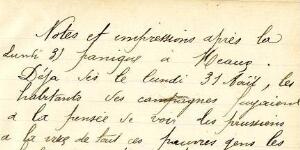 Notes et impressions après la
Lundi 31 panique à Meaux.
Déja dès le lundi 31 Août, les
habitants des campagnes fuyaient
à la pensée de voir les prussiens
a la vue de tout ces pauvres gens les